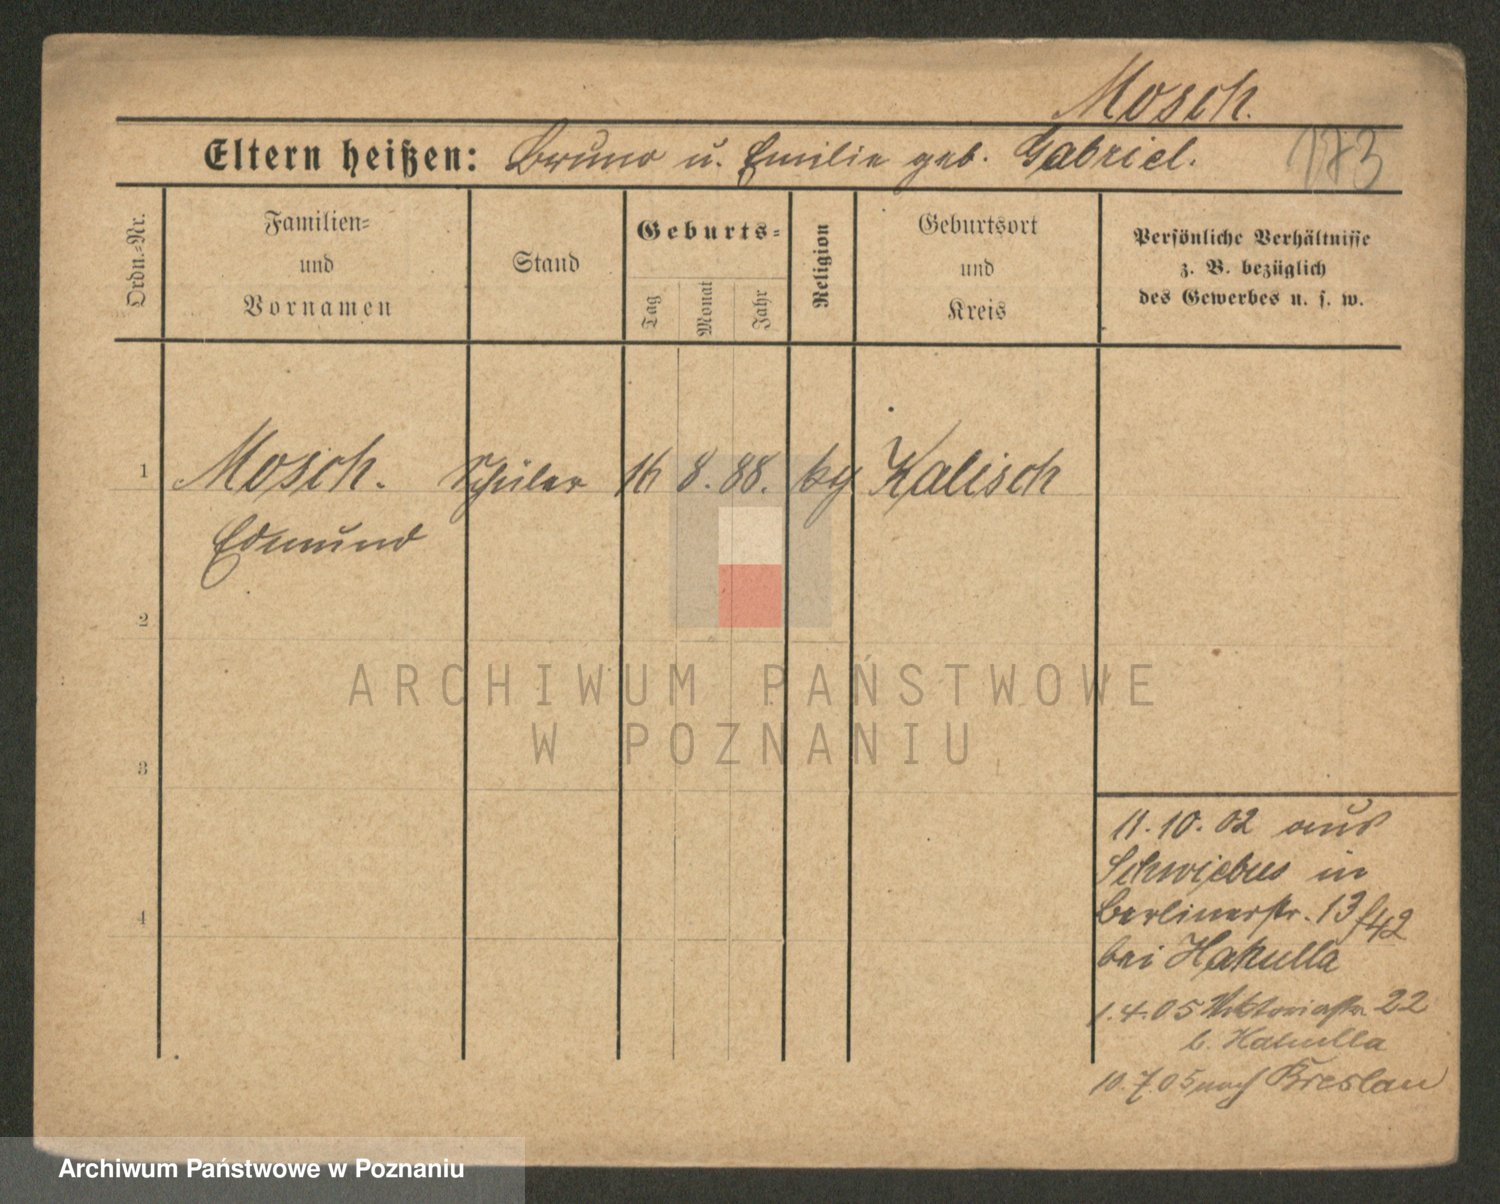 Mosch.
Eltern heißen: Bruno u. Emilie geb. Gabriel.
173
Ordn.-Nr.
Familien-
und
Vornamen
Stand
Geburts-
Tag
Monat
Jahr
Religion
Geburtsort
und
Kreis
Persönliche Verhältnisse
z. B. bezüglich
des Gewerbes u. s. w.
1 Mosch. Schüler 16 8. 88. kg Kalisch
Edmund
2
3
4
11.10.02 aus
Schwiebus in
Berlinerstr. 13 f42
bei Hakulla
1.4.05 Viktoriastr 22
b. Hakulla
10.7.05 nach Breslau
ARCHIWUM PAŃSTWOWE
W POZNANIU
Archiwum Państwowe w Poznaniu